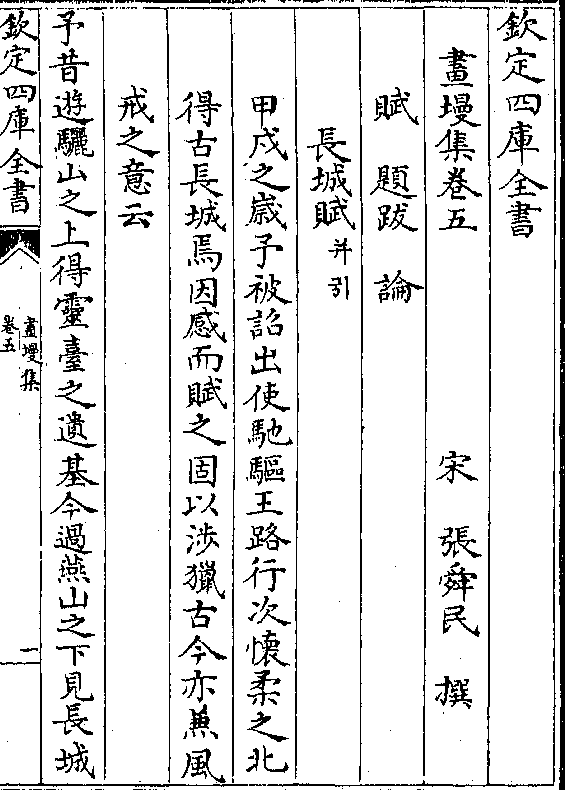 欽定四庫全書
畫墁集卷五
宋　張舜民　撰
賦　題跋　論
長城賦并引
甲戌之歲予被詔出使馳驅王路行次懷柔之北
得古長城焉因感而賦之固以涉獵古今亦兼風
戒之意云
予昔遊驪山之上得靈臺之遺基今過燕山之下見長城
欽定四庫全書
畫墁集
卷五
一